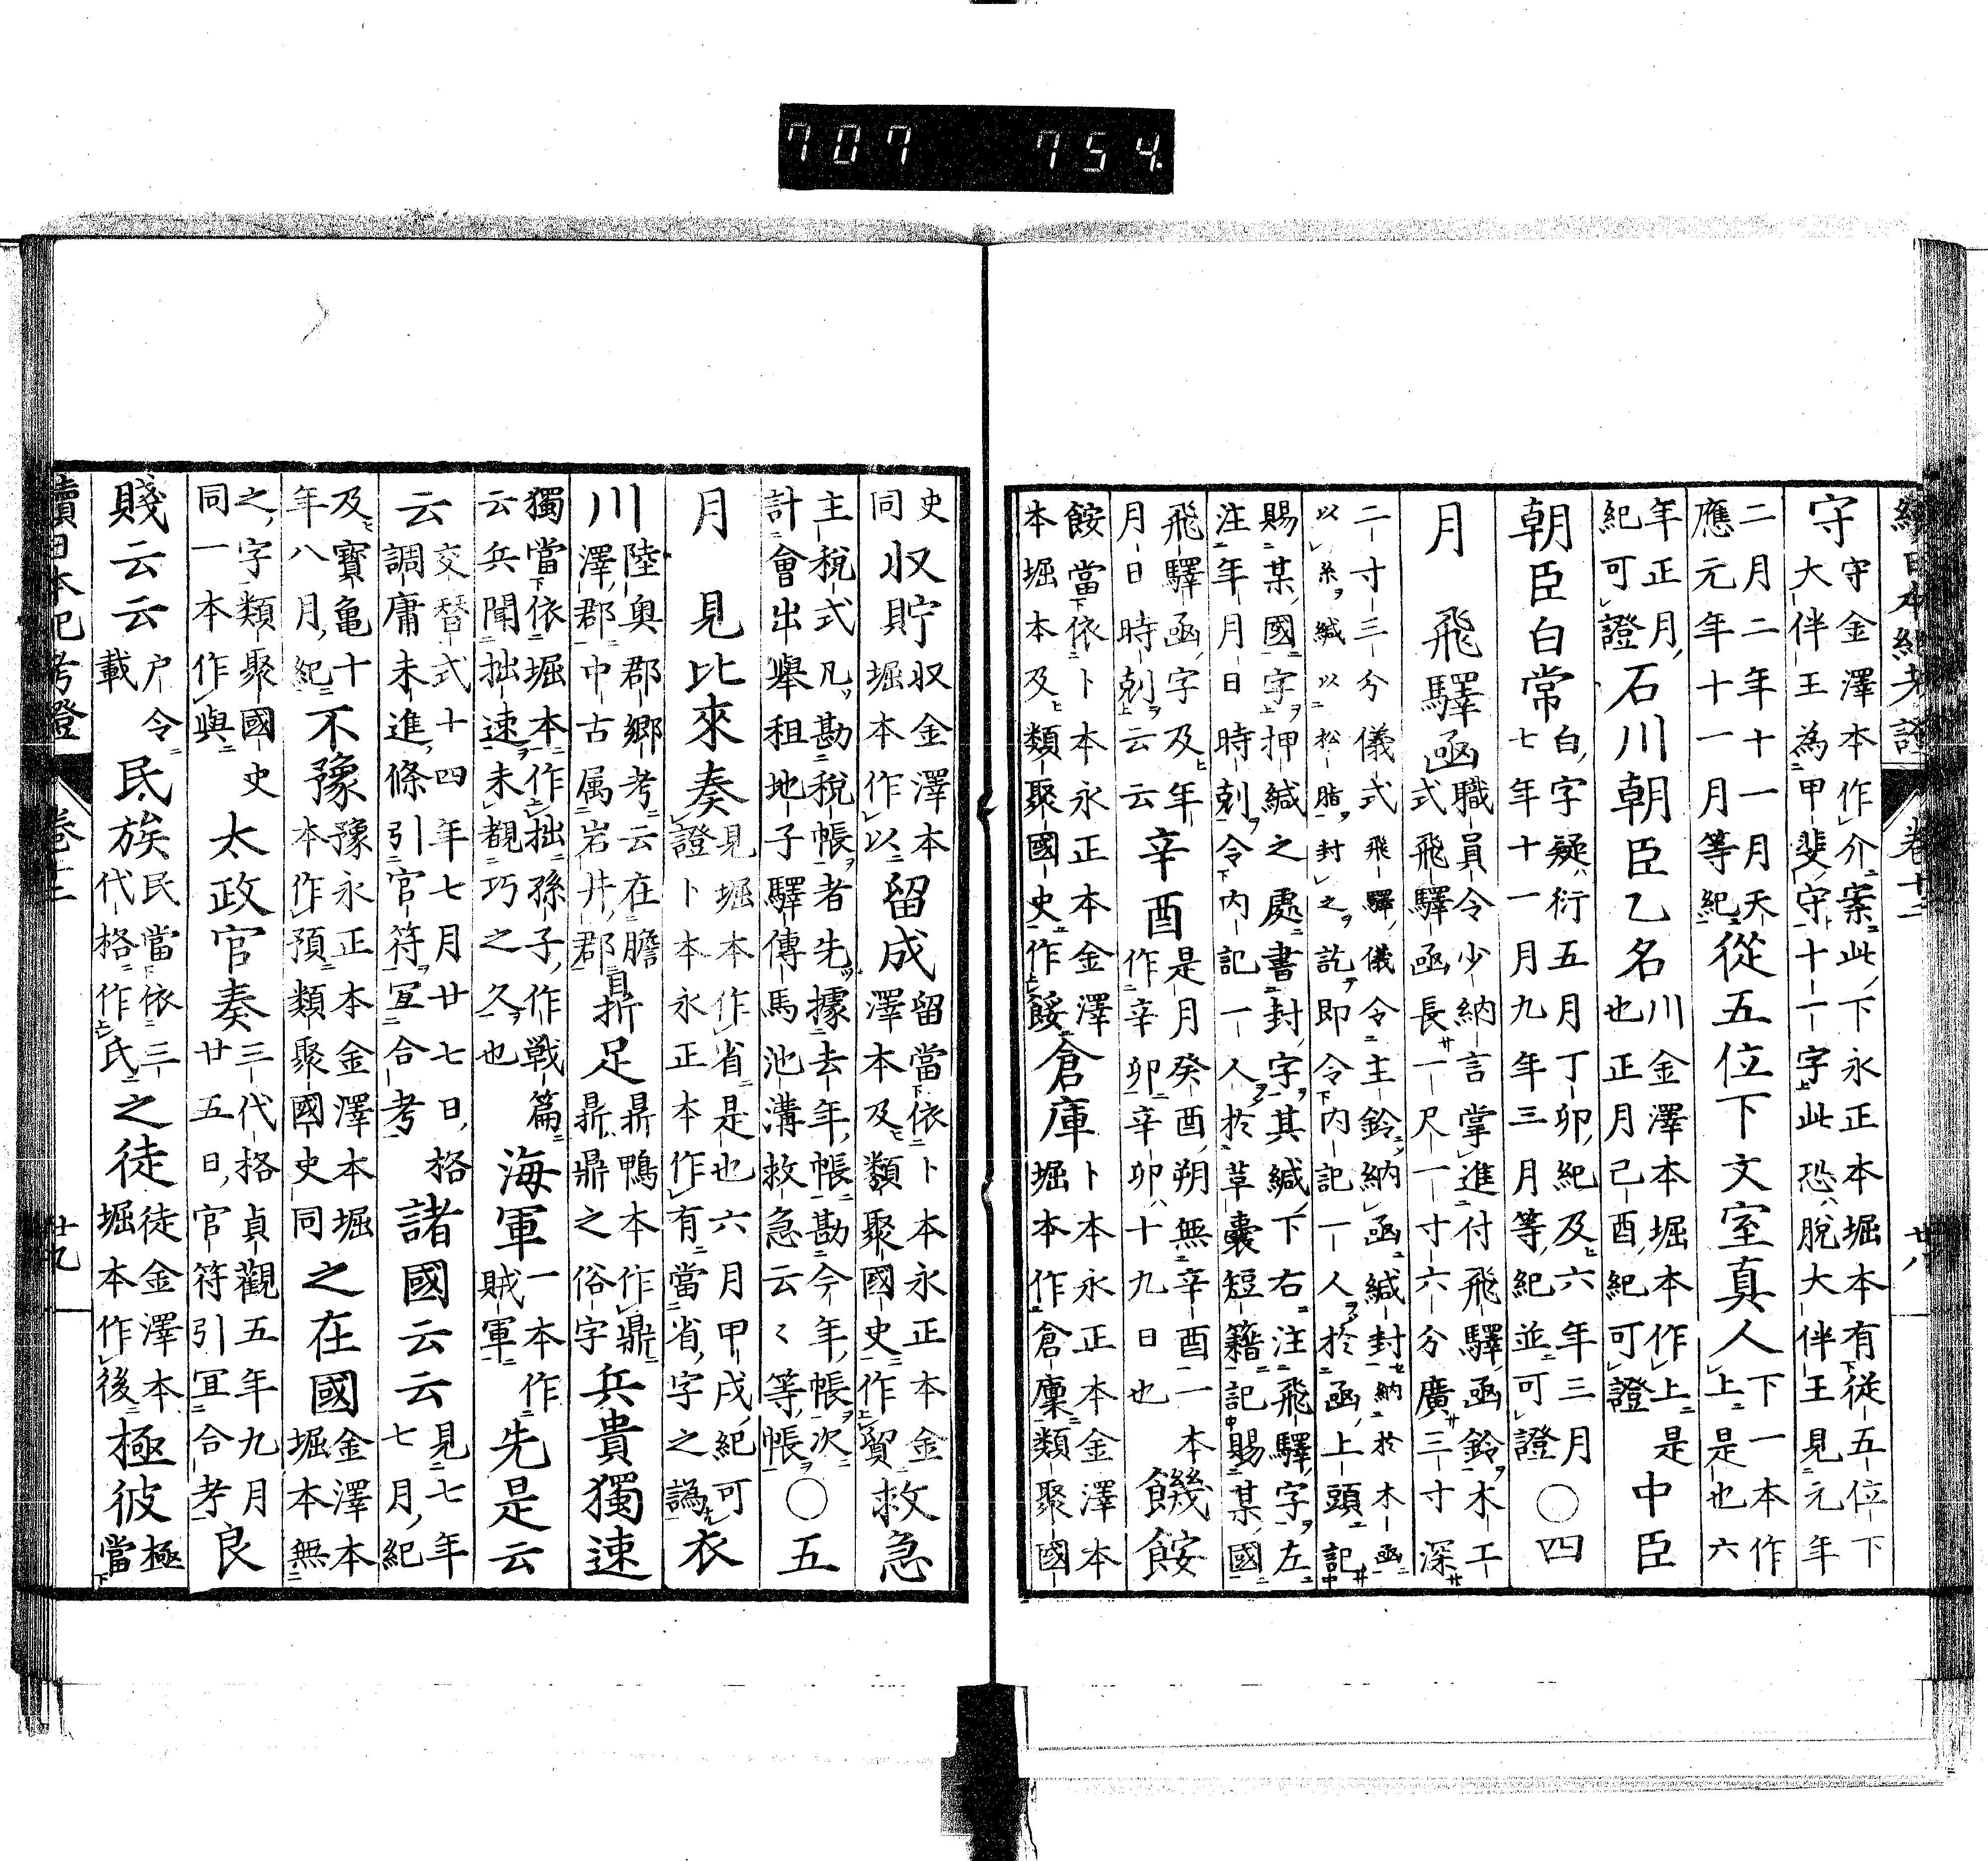 707 754
續日本紀考證 卷十二 廿八
守守金澤本作介案此下永正本堀本有從五位下
大伴王為甲斐守十一字此恐脫大伴王見元年
二月二年十一月天
應元年十一月等紀從五位下文室真人下一本作
上是也六
年正月
紀可證石川朝臣乙名川金澤本堀本作上是
也正月己酉紀可證中臣
朝臣白常白字疑衍五月丁卯紀及六年三月
七年十一月九年三月等紀並可證○四
月 飛驛函職員令少納言掌進付飛驛函鈴木工
式飛驛函長一尺一寸六分廣三寸深
二寸三分儀式飛驛儀令主鈴納函緘封納於木函
以糸緘以松脂封之訖即令內記一人於函上頭記
賜某國字押緘之處書封字其緘下右注飛驛字左
注年月日時剋令內記一人於草囊短籍記賜某國
飛驛函字及年
月日時剋云云辛酉是月癸酉朔無辛酉一本
作辛卯辛卯十九日也饑餒
餒當依卜本永正本金澤
本堀本及類聚國史作餒倉庫卜本永正本金澤本
堀本作倉廩類聚國
史
同收貯收金澤本
堀本作以留成留當依卜本永正本金
澤本及類聚國史作貿救急
主稅式凡勘稅帳者先據去年帳勘今年帳次
計會出舉租地子驛傳馬池溝救急云々等帳○五
月 見比來奏見堀本作省是也六月甲戌紀可
證卜本永正本作有當省字之譌衣
川陸奧郡鄉考云在膽
澤郡中古属岩井郡折足鼎鼎鴨本作鼎
鼎之俗字兵貴獨速
獨當依堀本作拙孫子作戰篇
云兵聞拙速未覩巧之久也海軍一本作
賊軍先是云
云交替式十四年七月廿七日格
調庸未進條引官符宜合考諸國云云見七年
七月紀
及寶龜十
年八月紀不豫豫永正本金澤本堀
本作預類聚國史同之在國金澤本
堀本無
之字類聚國史
同一本作與太政官奏三代格貞觀五年九月
廿五日官符引宜合考良
賤云云户令
載民族民當依三
代格作氏之徒徒金澤本
堀本作後極彼極
當
續日本紀考證 卷十二 廿九